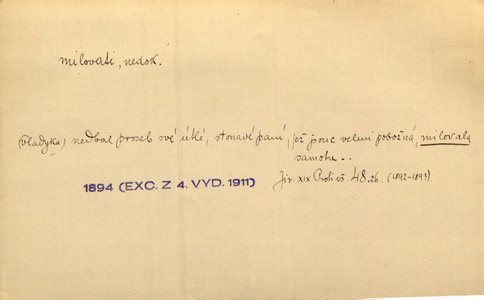 milovati, nedok.
(vladyka) nedbal proseb své útlé, stonavé paní, jež jsouc velmi pobožná, milovala
samotu..
1894 (EXC. Z 4. VYD. 1911)
Jir. XIX. Proti vš. 48. 26. (1892-1893).